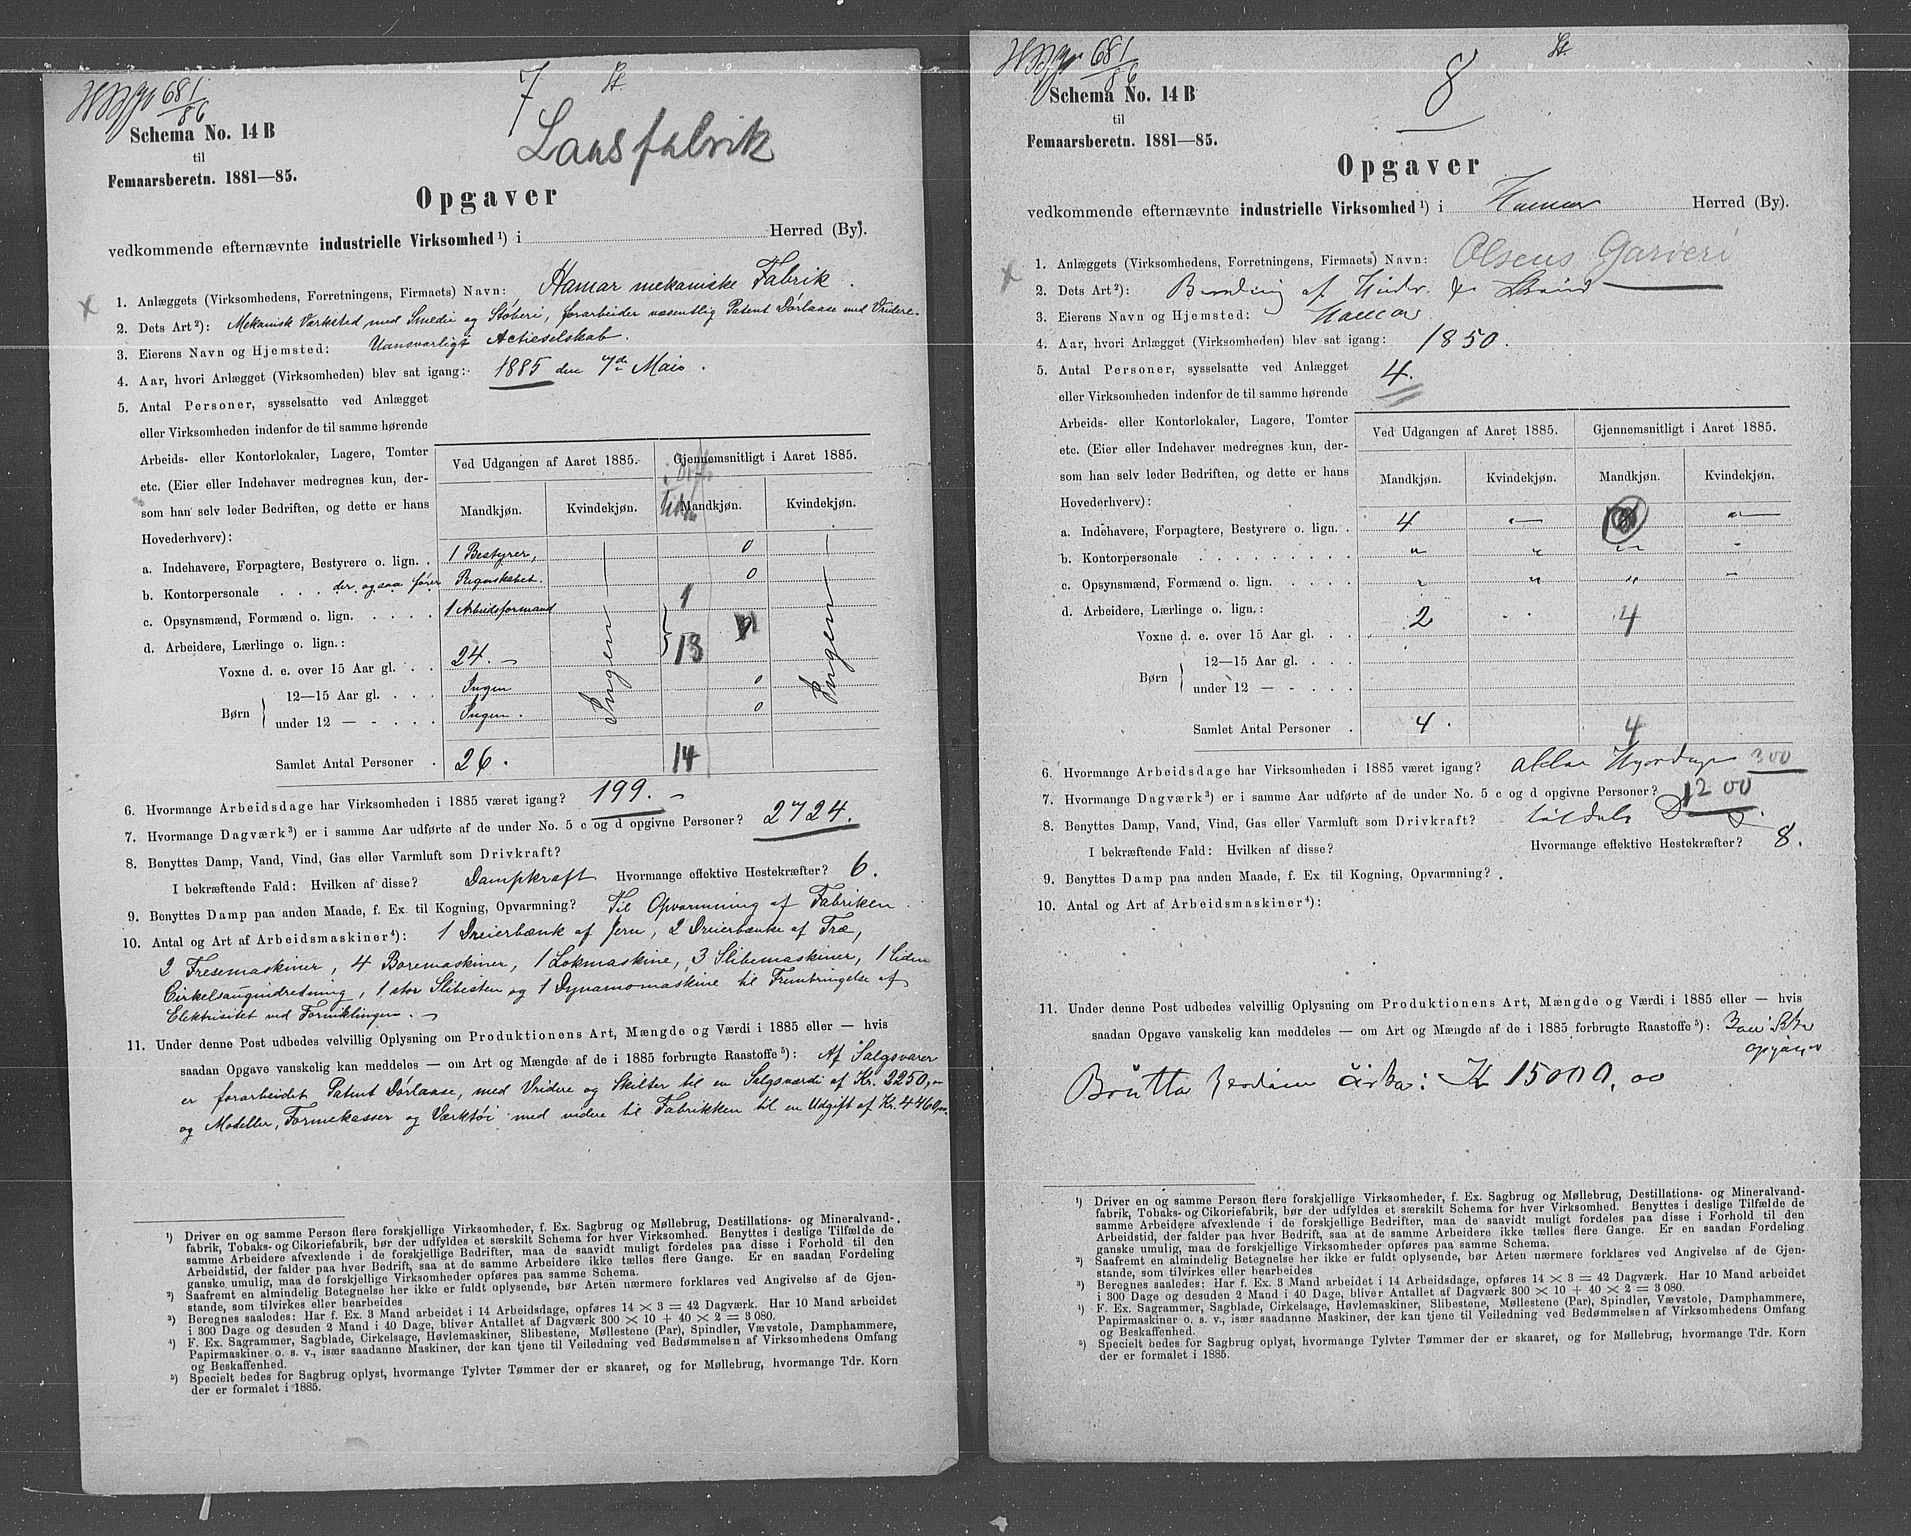 681
86
7
Schema No. 14 B
til
Femaarsberetn. 1881—85.
Laasfabrik
Opgaver
vedkommende efternævnte industrielle Virksomhed ¹) i Herred (By).
1. Anlæggets (Virksomhedens, Forretningens, Firmaets) Navn: Hamar mekaniske Fabrik
2. Dets Art ²): Mekanisk Værksted med Smedie og Støberi, forarbeider væsentlig Patent Dörlaase med Vridere.
3. Eierens Navn og Hjemsted: Uansvarligt Actieselskab.
4. Aar, hvori Anlægget (Virksomheden) blev sat igang: 1885 den 7de Maio.
5. Antal Personer, sysselsatte ved Anlægget
eller Virksomheden indenfor de til samme hørende
Arbeids- eller Kontorlokaler, Lagere, Tomter
etc. (Eier eller Indehaver medregnes kun, der-
som han selv leder Bedriften, og dette er hans
Hovederhverv):
Ved Udgangen af Aaret 1885. Gjennemsnitligt i Aaret 1885.
Mandkjøn. Kvindekjøn. Mandkjøn. Kvindekjøn.
a. Indehavere, Forpagtere, Bestyrere o. lign. . 1 Bestyrer, 0
b. Kontorpersonale . . . der ogsaa fører Regnskabet. 0
c. Opsynsmænd, Formænd o. lign. . . . . . 1 Arbeidsformand 1
d. Arbeidere, Lærlinge o. lign.:
Voxne d. e. over 15 Aar gl. . . 24. – Ingen 13 Ingen
Børn 12—15 Aar gl. . . . . Ingen 0
under 12 — - . . . . Ingen. 0
Samlet Antal Personer . 26. 14
6. Hvormange Arbeidsdage har Virksomheden i 1885 været igang? 199. –
7. Hvormange Dagværk ³) er i samme Aar udførte af de under No. 5 c og d opgivne Personer? 2724.
8. Benyttes Damp, Vand, Vind, Gas eller Varmluft som Drivkraft?
I bekræftende Fald: Hvilken af disse? Dampkraft Hvormange effektive Hestekræfter? 6.
9. Benyttes Damp paa anden Maade, f. Ex. til Kogning, Opvarmning? Til Opvarmning af Fabriken.
10. Antal og Art af Arbeidsmaskiner ⁴): 1 Dreierbænk af Jern, 2 Dreierbænke af Træ,
2 Fresemaskiner, 4 Boremaskiner, 1 Lokmaskine, 3 Slibemaskiner, 1 liden
Cirkelsaugindretning, 1 stor Slibesten og 1 Dynamomaskine til Frembringelse af
Elektrisitet ved Forniklingen. –
11. Under denne Post udbedes velvillig Oplysning om Produktionens Art, Mængde og Værdi i 1885 eller — hvis
saadan Opgave vanskelig kan meddeles — om Art og Mængde af de i 1885 forbrugte Raastoffe ⁵): Af Salgsvarer
er forarbeidet Patent Dörlaase, med Vridere og Skilter til en Salgsværdi af Kr. 2250,00
og Modeller, Formekasser og Værktøi med videre til Fabrikken til en Udgift af Kr. 4460,00.
¹) Driver en og samme Person flere forskjellige Virksomheder, f. Ex. Sagbrug og Møllebrug, Destillations- og Mineralvand-
fabrik, Tobaks- og Cikoriefabrik, bør der udfyldes et særskilt Schema for hver Virksomhed. Benyttes i deslige Tilfælde de
samme Arbeidere afvexlende i de forskjellige Bedrifter, maa de saavidt muligt fordeles paa disse i Forhold til den
Arbeidstid, der falder paa hver Bedrift, saa at de samme Arbeidere ikke tælles flere Gange. Er en saadan Fordeling
ganske umulig, maa de forskjellige Virksomheder opføres paa samme Schema.
²) Saafremt en almindelig Betegnelse her ikke er fuldt oplysende, bør Arten nærmere forklares ved Angivelse af de Gjen-
stande, som tilvirkes eller bearbeides
³) Beregnes saaledes: Har f. Ex. 3 Mand arbeidet i 14 Arbeidsdage, opføres 14 × 3 = 42 Dagværk. Har 10 Mand arbeidet
i 300 Dage og desuden 2 Mand i 40 Dage, bliver Antallet af Dagværk 300 × 10 + 40 × 2 = 3 080.
⁴) F. Ex. Sagrammer, Sagblade, Cirkelsage, Høvlemaskiner, Slibestene, Møllestene (Par), Spindler, Vævstole, Damphammere,
Papirmaskiner o. s. v., især saadanne Maskiner, der kan tjene til Veiledning ved Bedømmelsen af Virksomhedens Omfang
og Beskaffenhed.
⁵) Specielt bedes for Sagbrug oplyst, hvormange Tylvter Tømmer der er skaaret, og for Møllebrug, hvormange Tdr. Korn
der er formalet i 1885.
681
86
8
Schema No. 14 B
til
Femaarsberetn. 1881—85.
Opgaver
vedkommende efternævnte industrielle Virksomhed ¹) i Hamar Herred (By).
1. Anlæggets (Virksomhedens, Forretningens, Firmaets) Navn: Olsens Garveri
2. Dets Art ²): af Huder og Skind
3. Eierens Navn og Hjemsted: Hamar
4. Aar, hvori Anlægget (Virksomheden) blev sat igang: 1850.
5. Antal Personer, sysselsatte ved Anlægget 4.
eller Virksomheden indenfor de til samme hørende
Arbeids- eller Kontorlokaler, Lagere, Tomter
etc. (Eier eller Indehaver medregnes kun, der-
som han selv leder Bedriften, og dette er hans
Hovederhverv):
Ved Udgangen af Aaret 1885. Gjennemsnitligt i Aaret 1885.
Mandkjøn. Kvindekjøn. Mandkjøn. Kvindekjøn.
a. Indehavere, Forpagtere, Bestyrere o. lign. . 4 „— „—
b. Kontorpersonale . . . . . . . . . „ „ „ „
c. Opsynsmænd, Formænd o. lign. . . . . „ „ „ –
d. Arbeidere, Lærlinge o. lign.: 2 4
Voxne d. e. over 15 Aar gl. . .
Børn 12—15 Aar gl. . . . .
under 12 — - . . . .
Samlet Antal Personer . 4. 4
6. Hvormange Arbeidsdage har Virksomheden i 1885 været igang? alle Hverdage 300
7. Hvormange Dagværk ³) er i samme Aar udførte af de under No. 5 c og d opgivne Personer? 1200
8. Benyttes Damp, Vand, Vind, Gas eller Varmluft som Drivkraft?
I bekræftende Fald: Hvilken af disse? Hvormange effektive Hestekræfter? 8.
9. Benyttes Damp paa anden Maade, f. Ex. til Kogning, Opvarmning?
10. Antal og Art af Arbeidsmaskiner ⁴):
11. Under denne Post udbedes velvillig Oplysning om Produktionens Art, Mængde og Værdi i 1885 eller — hvis
saadan Opgave vanskelig kan meddeles — om Art og Mængde af de i 1885 forbrugte Raastoffe ⁵): kan ikke
opgives
Brutto cirka: Kr 15000,00
¹) Driver en og samme Person flere forskjellige Virksomheder, f. Ex. Sagbrug og Møllebrug, Destillations- og Mineralvand-
fabrik, Tobaks- og Cikoriefabrik, bør der udfyldes et særskilt Schema for hver Virksomhed. Benyttes i deslige Tilfælde de
samme Arbeidere afvexlende i de forskjellige Bedrifter, maa de saavidt muligt fordeles paa disse i Forhold til den
Arbeidstid, der falder paa hver Bedrift, saa at de samme Arbeidere ikke tælles flere Gange. Er en saadan Fordeling
ganske umulig, maa de forskjellige Virksomheder opføres paa samme Schema.
²) Saafremt en almindelig Betegnelse her ikke er fuldt oplysende, bør Arten nærmere forklares ved Angivelse af de Gjen-
stande, som tilvirkes eller bearbeides
³) Beregnes saaledes: Har f. Ex. 3 Mand arbeidet i 14 Arbeidsdage, opføres 14 × 3 = 42 Dagværk. Har 10 Mand arbeidet
i 300 Dage og desuden 2 Mand i 40 Dage, bliver Antallet af Dagværk 300 × 10 + 40 × 2 = 3 080.
⁴) F. Ex. Sagrammer, Sagblade, Cirkelsage, Høvlemaskiner, Slibestene, Møllestene (Par), Spindler, Vævstole, Damphammere,
Papirmaskiner o. s. v., især saadanne Maskiner, der kan tjene til Veiledning ved Bedømmelsen af Virksomhedens Omfang
og Beskaffenhed.
⁵) Specielt bedes for Sagbrug oplyst, hvormange Tylvter Tømmer der er skaaret, og for Møllebrug, hvormange Tdr. Korn
der er formalet i 1885.